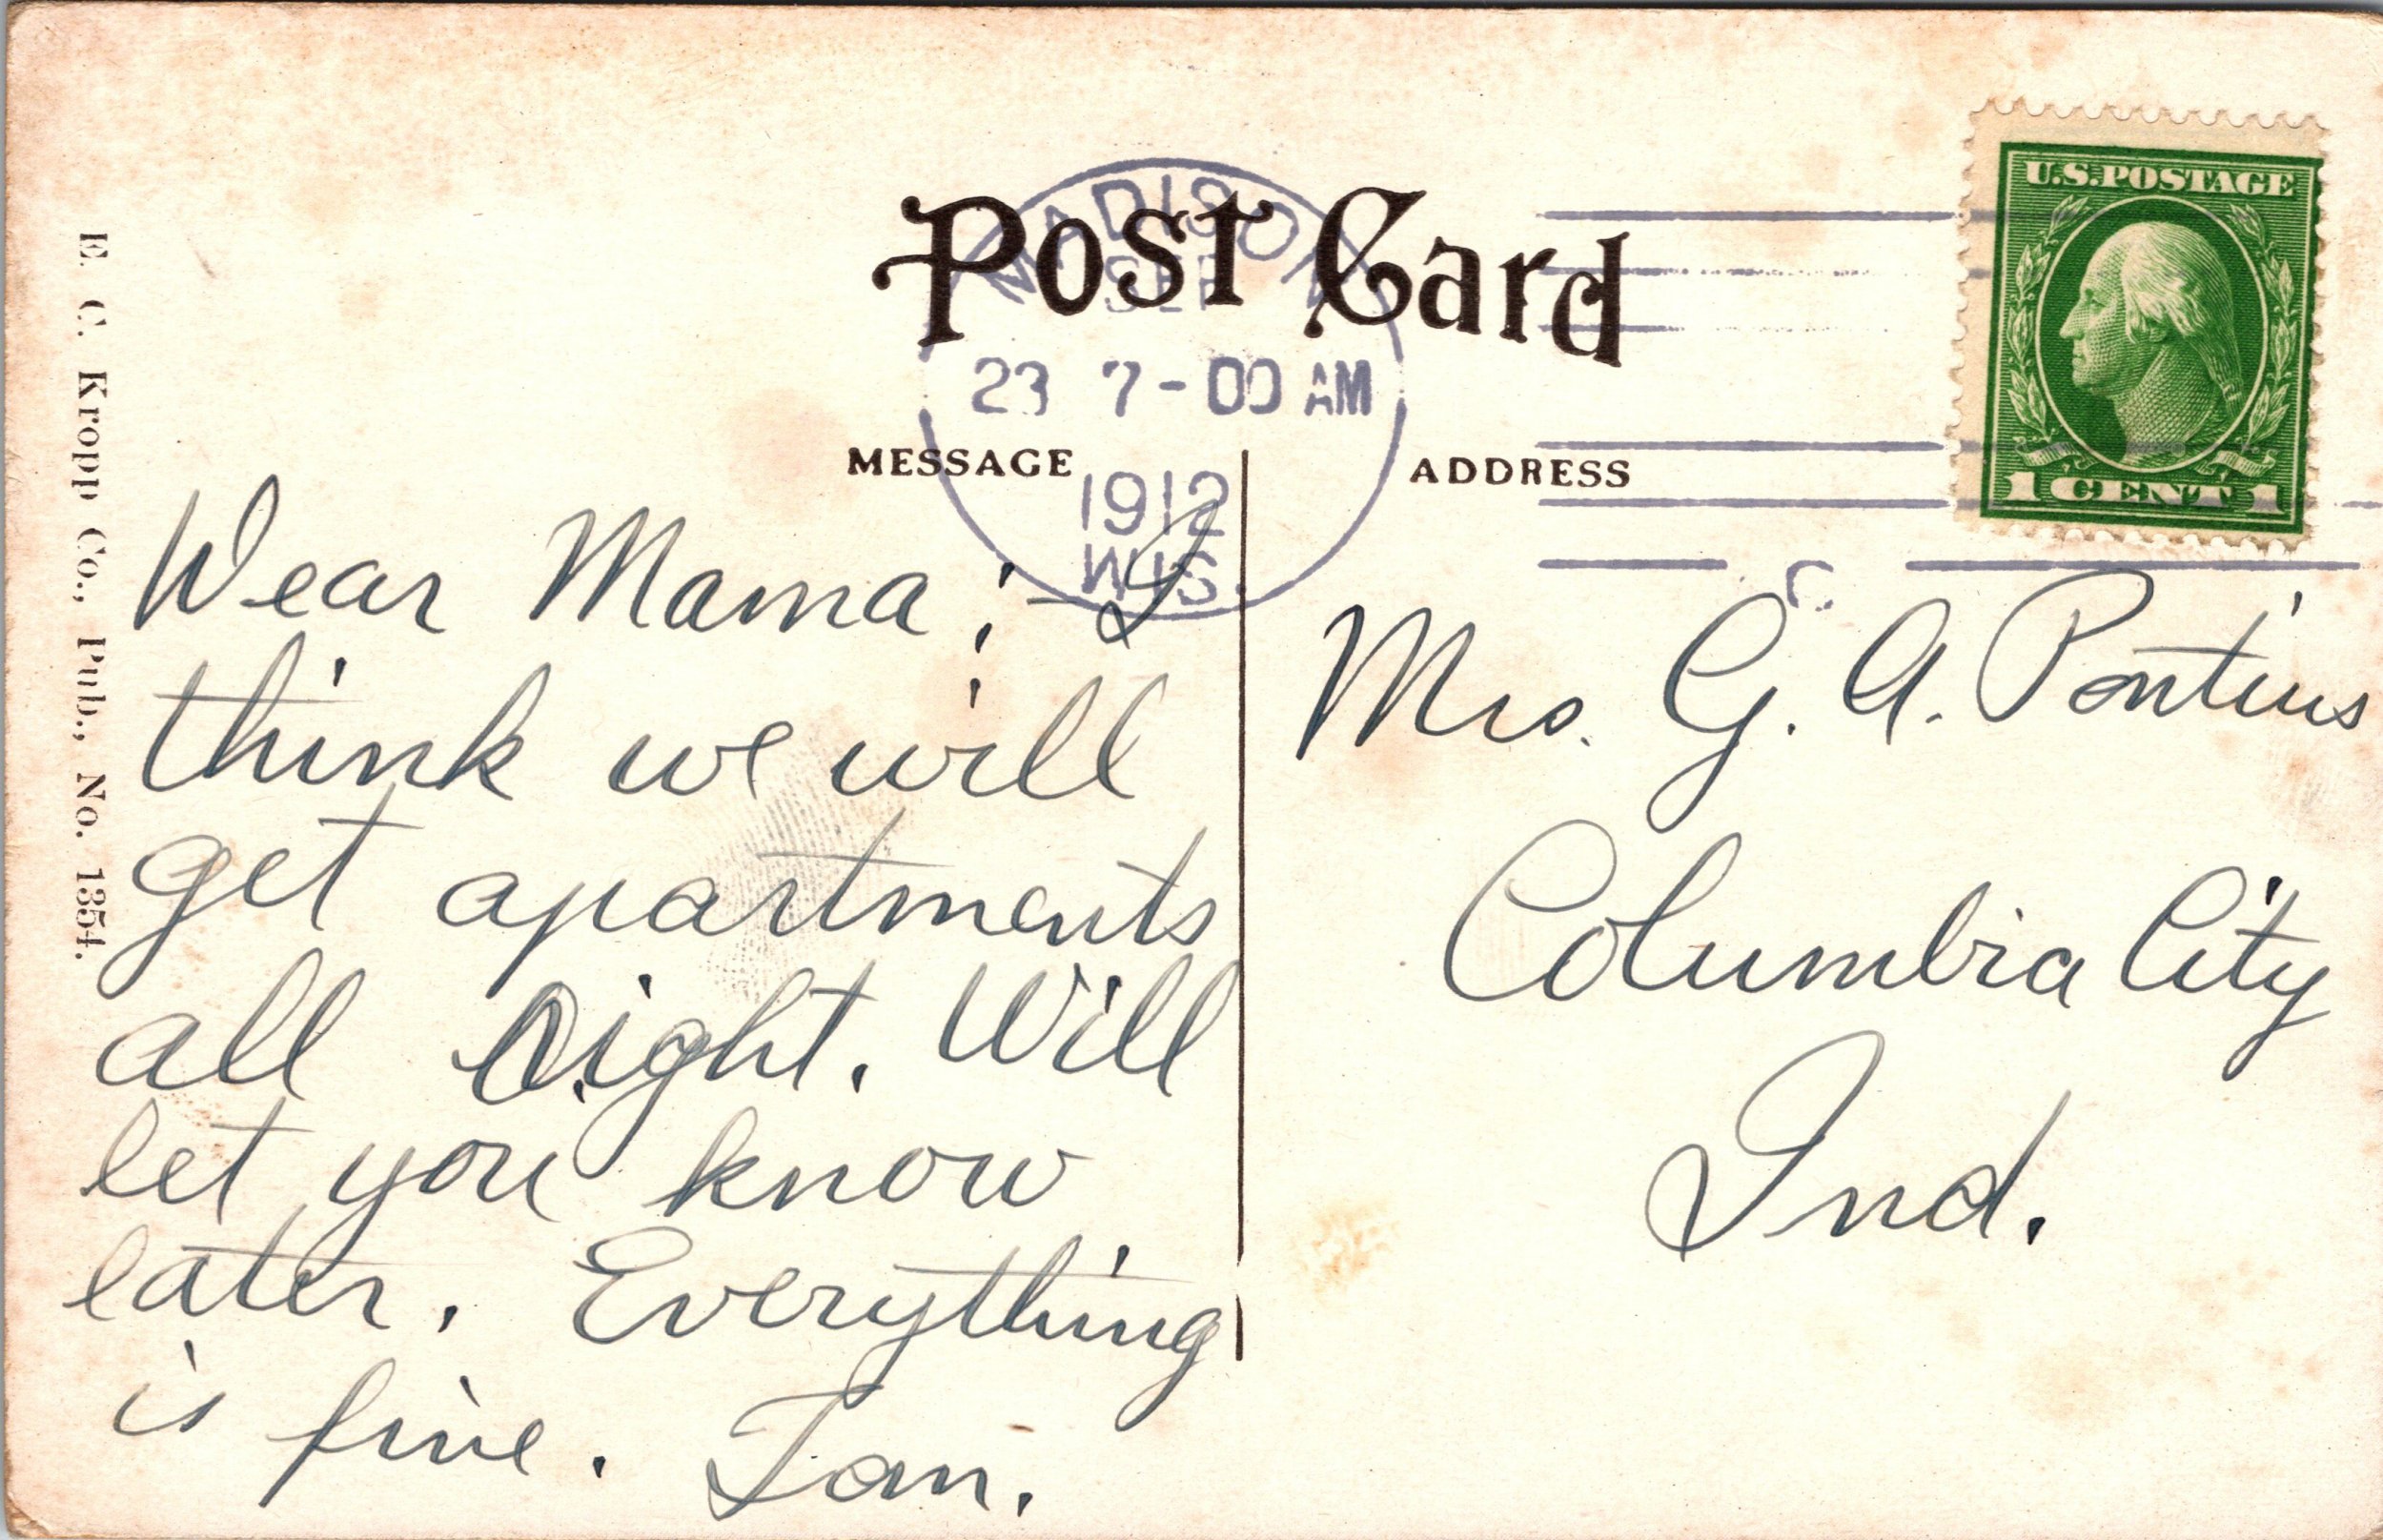 Post Card
MADISON
SEP
23 7-00 AM
1912
WIS.
U.S. POSTAGE
1 CENT 1
MESSAGE
ADDRESS
E. C. Kropp Co., Pub., No. 1354.
Dear Mama;- I
think we will
get apartments
all right. Will
let you know
later. Everything
is fine.
Mrs. G. A. Pontius
Columbia City
Ind.